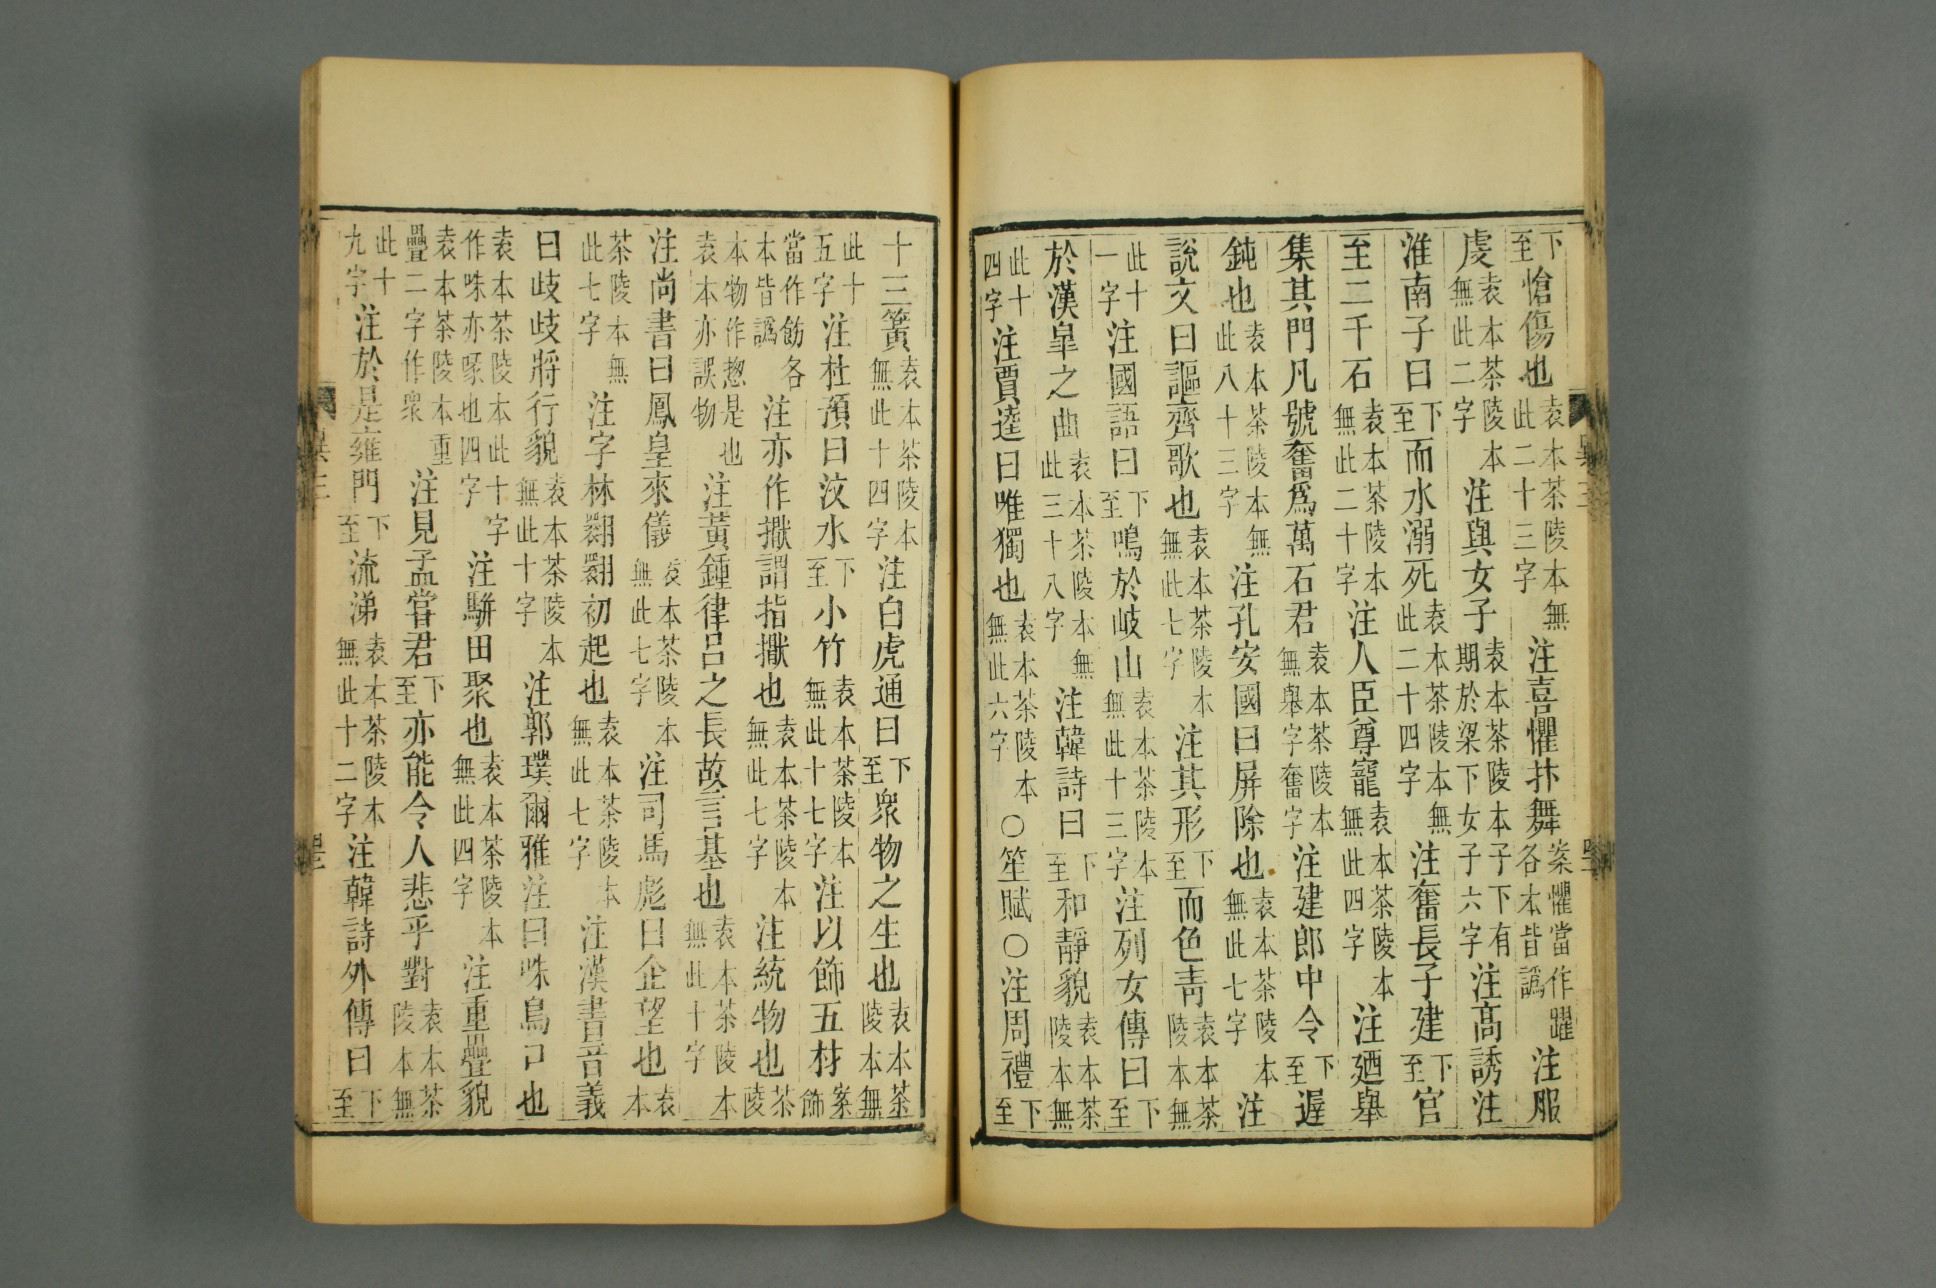 下至愴傷也袁本茶陵本無此二十三字注喜懼抃舞案懼當作躍各本皆譌注服
虔袁本茶陵本無此二字注與女子袁本茶陵本子下有期於梁下女子六字注高誘注
淮南子曰下至而水溺死袁本茶陵本無此二十四字注奮長子建下至官
至二千石袁本茶陵本無此二十字注人臣尊寵袁本茶陵本無此四字注廼舉
集其門凡號奮爲萬石君袁本茶陵本無舉字奮字注建郎中令下至遲
鈍也袁本茶陵本無此八十三字注孔安國曰屏除也袁本茶陵本無此七字注
說文曰謳齊歌也袁本茶陵本無此七字注其形下至而色青袁本茶陵本無
此十一字注國語曰下至鳴於岐山袁本茶陵本無此十三字注列女傳曰下至
於漢皐之曲袁本茶陵本無此三十八字注韓詩曰下至和靜貌袁本茶陵本無
此十四字注賈逵曰唯獨也袁本茶陵本無此六字○笙賦○注周禮下至
十三簧袁本茶陵本無此十四字注白虎通曰下至衆物之生也袁本茶陵本無
此十五字注杜預曰汶水下至小竹袁本茶陵本無此十七字注以飾五材案飾
當作飭各本皆譌注亦作擫謂指擫也袁本茶陵本無此七字注統物也茶陵
本物作惣是也袁本亦誤物注黃鍾律呂之長故言基也袁本茶陵本無此十字
注尚書曰鳳皇來儀袁本茶陵本無此七字注司馬彪曰企望也袁本
茶陵本無此七字注字林翾翾初起也袁本茶陵本無此七字注漢書音義
曰歧歧將行貌袁本茶陵本無此十字注郭璞爾雅注曰咮鳥口也
袁本茶陵本此十字作咮亦啄也四字注駢田聚也袁本茶陵本無此四字注重疊貌
袁本茶陵本重疊二字作衆注見孟嘗君下至亦能令人悲乎對袁本茶陵本無
此十九字注於是雍門下至流涕袁本茶陵本無此十二字注韓詩外傳曰下至